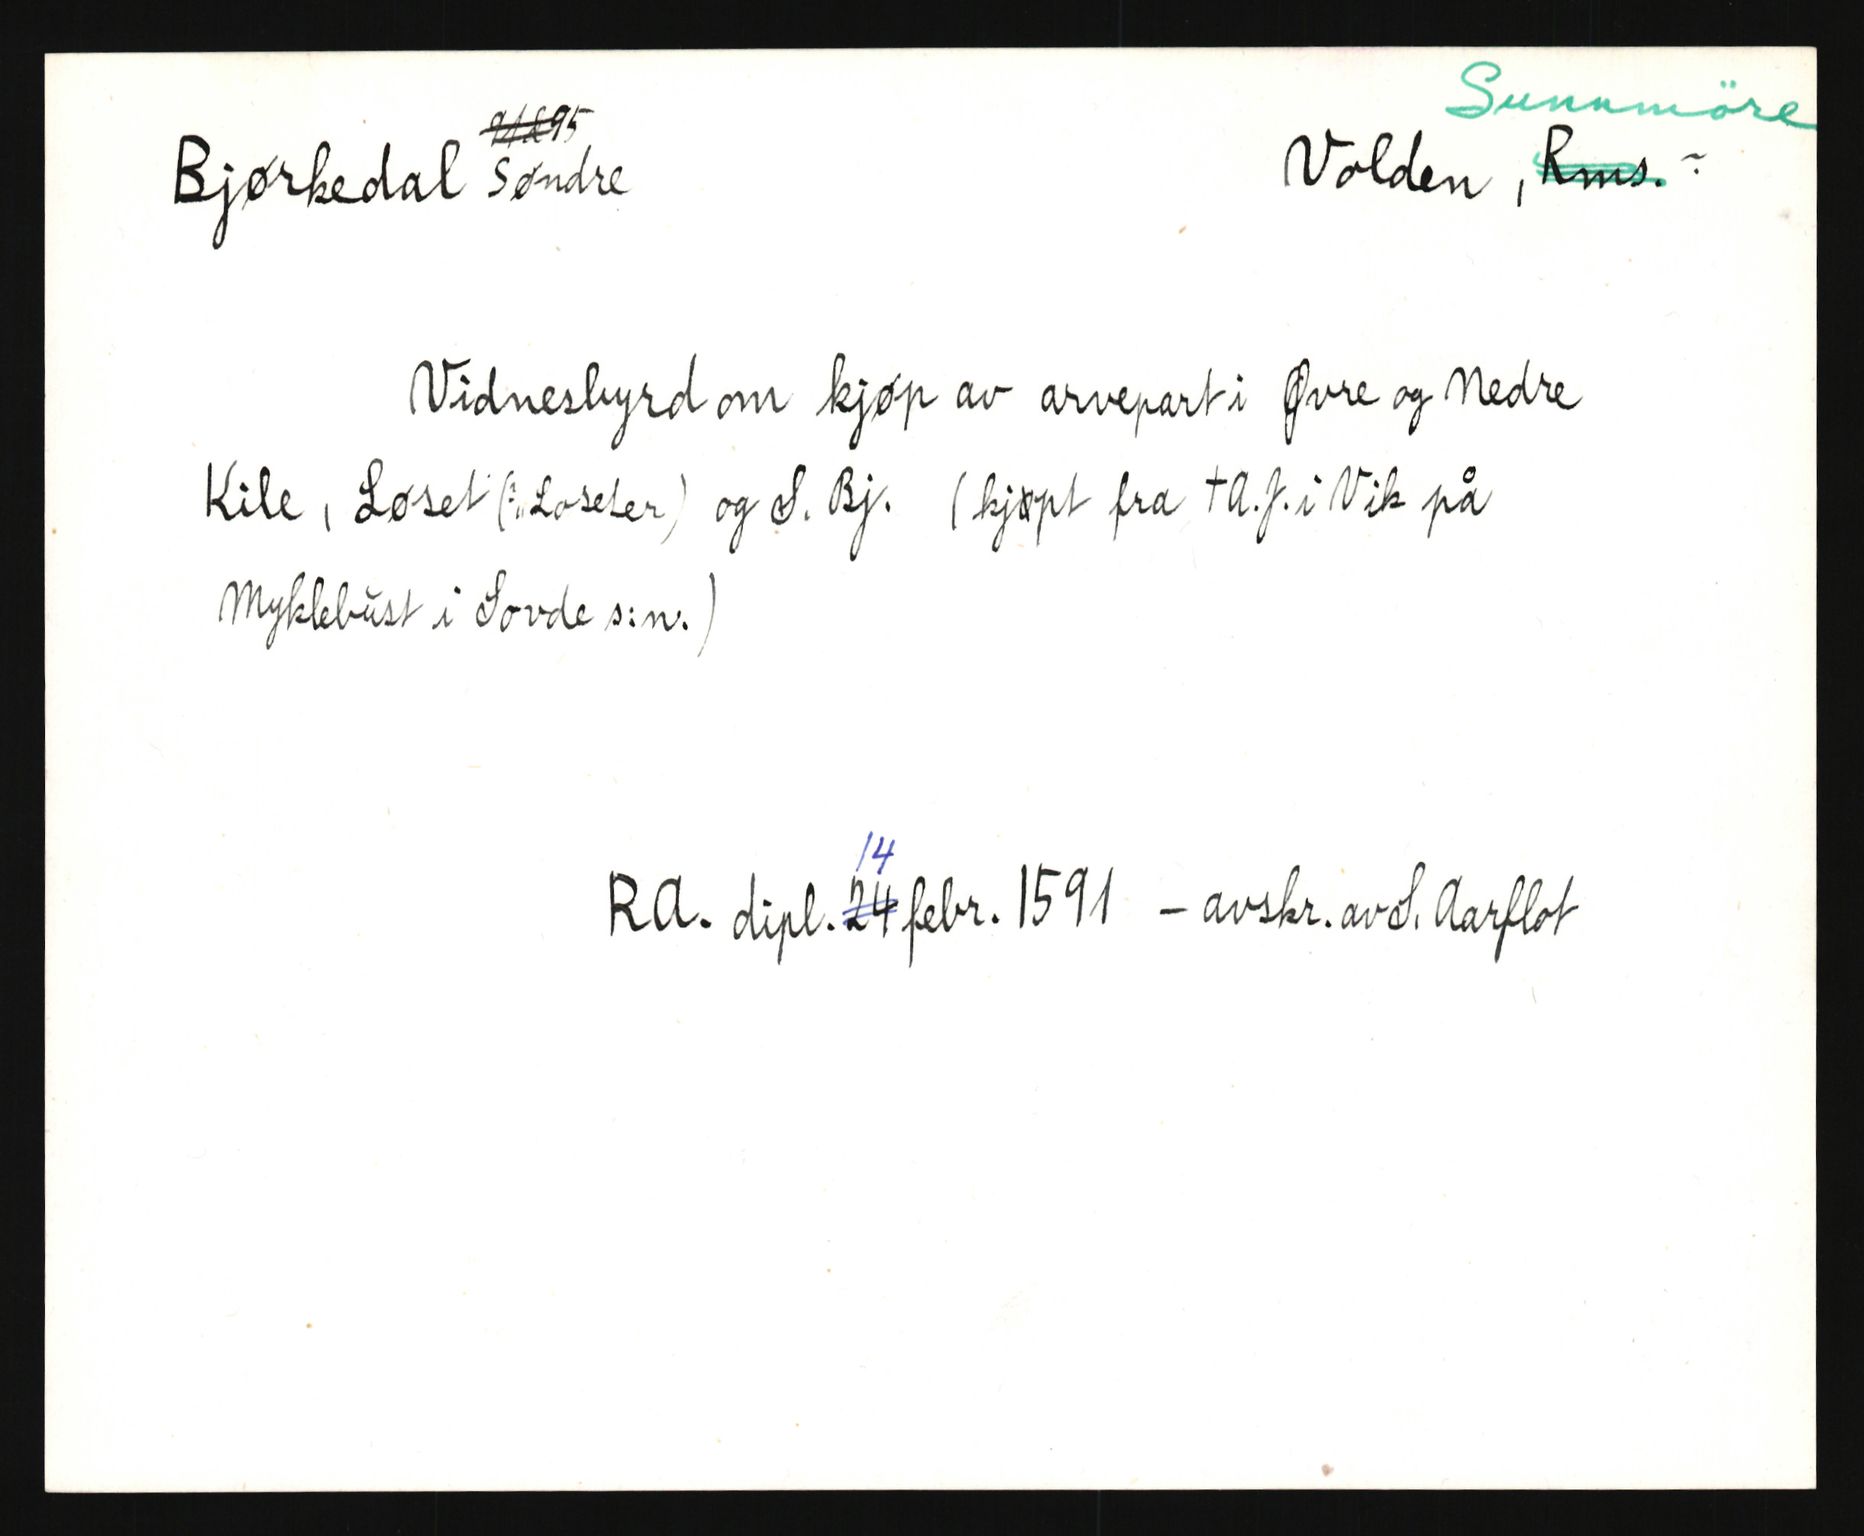 Sunnmöre
Bjørkedal Søndre Volden, Rms.
Vidnesbyrd om kjøp av arvepart i Øvre og Nedre
Kile, Løset (: "Loseter) og S. Bj. (kjøpt fra †A.J. i Vik på
Myklebust i Sovde s:n.)
14
RA. dipl. 24 febr. 1591 – avskr. av S. Aarflot